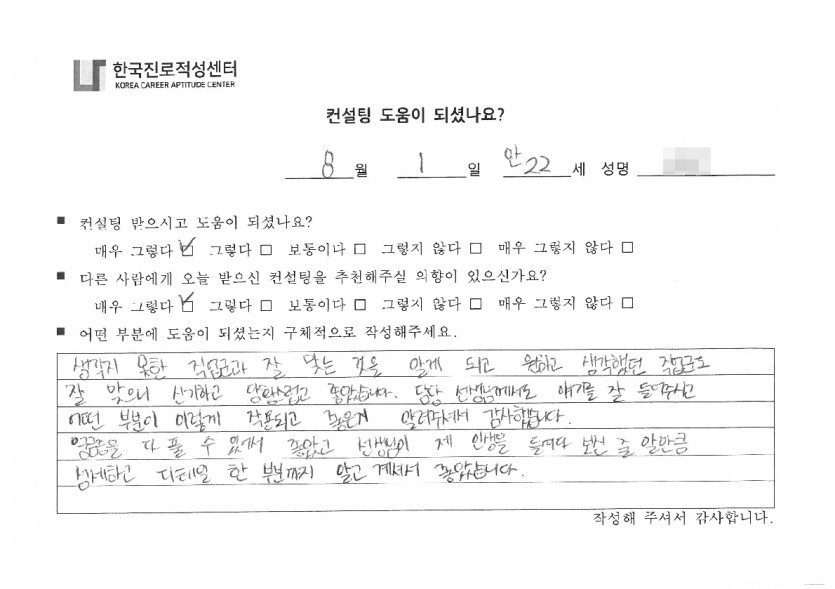 한국진로적성센터
KOREA CAREER APTITUDE CENTER
컨설팅 도움이 되셨나요?
8 월 1 일 만 22 세 성명
■ 컨설팅 받으시고 도움이 되셨나요?
매우 그렇다 ☑ 그렇다 □ 보통이다 □ 그렇지 않다 □ 매우 그렇지 않다 □
■ 다른 사람에게 오늘 받으신 컨설팅을 추천해주실 의향이 있으신가요?
매우 그렇다 ☑ 그렇다 □ 보통이다 □ 그렇지 않다 □ 매우 그렇지 않다 □
■ 어떤 부분에 도움이 되셨는지 구체적으로 작성해주세요.
생각지 못한 직업군과 잘 맞는 것을 알게 되고 원하고 생각했던 직업군도
잘 맞으니 신기하고 좋았습니다. 담당 선생님께서도 얘기를 잘 들어주시고
어떤 부분이 이렇게 작용되고 좋은지 알려주셔서 감사했습니다.
궁금증을 다 풀 수 있어서 좋았고 선생님이 제 인생을 들여다 보신 줄 알만큼
섬세하고 디테일 한 부분까지 알고 계셔서 좋았습니다.
작성해 주셔서 감사합니다.